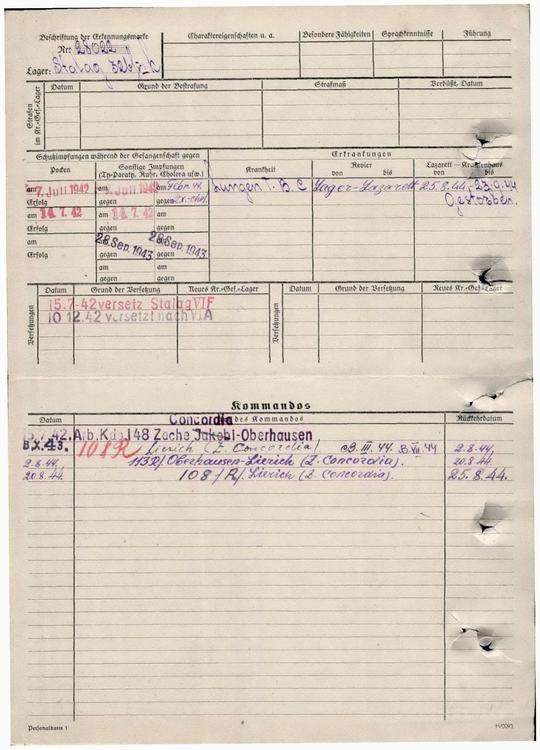 Beschriftung der Erkennungsmarke
Nr. 28022
Lager: Stalag
Charaktereigenschaften u. a.
Besondere Fähigkeiten
Sprachkenntnisse
Führung
Strafen im Kr.-Gef.-Lager
Datum
Grund der Bestrafung
Strafmaß
Verbüßt, Datum
Schutzimpfungen während der Gefangenschaft gegen
Erkrankungen
Pocken
Sonstige Impfungen
(Ty-Paraty, Ruhr, Cholera usw.)
Krankheit
Revier
von bis
Lazarett — Krankenhaus
von bis
am 7. Juli 1942 am 7. Juli 1942 am Febr. 44. Lungen T. B. C Lager-Lazarett 25.8.44.-23.9.44
Erfolg gegen gegen Gestorben.
am 14. 7. 42 am 14. 7. 42 am
Erfolg gegen gegen
am am 28. Sep. 1943 am 28. Sep. 1943
Erfolg gegen gegen
am am
gegen gegen
Versetzungen
Datum
Grund der Versetzung
Neues Kr.-Gef.-Lager
Versetzungen
Datum
Grund der Versetzung
Neues Kr.-Gef.-Lager
15.7.42 versetz Stalag VI F
10 12.42 versetzt nach VI A
Kommandos
Datum
Concordia des Kommandos
Rückkehrdatum
15.7.42. Arb. Kdo 148 Zeche Jakobi-Oberhausen
B.X.43. 108 R Lierich (Z. Concordia) B. III. 44. B. VII. 44 2.8.44.
2.8.44. 113R/Oberhausen-Lierich (Z. Concordia). 20.8.44
20.8.44. 108/R/. Lierich (Z. Concordia). 25.8.44.
Personalkarte 1